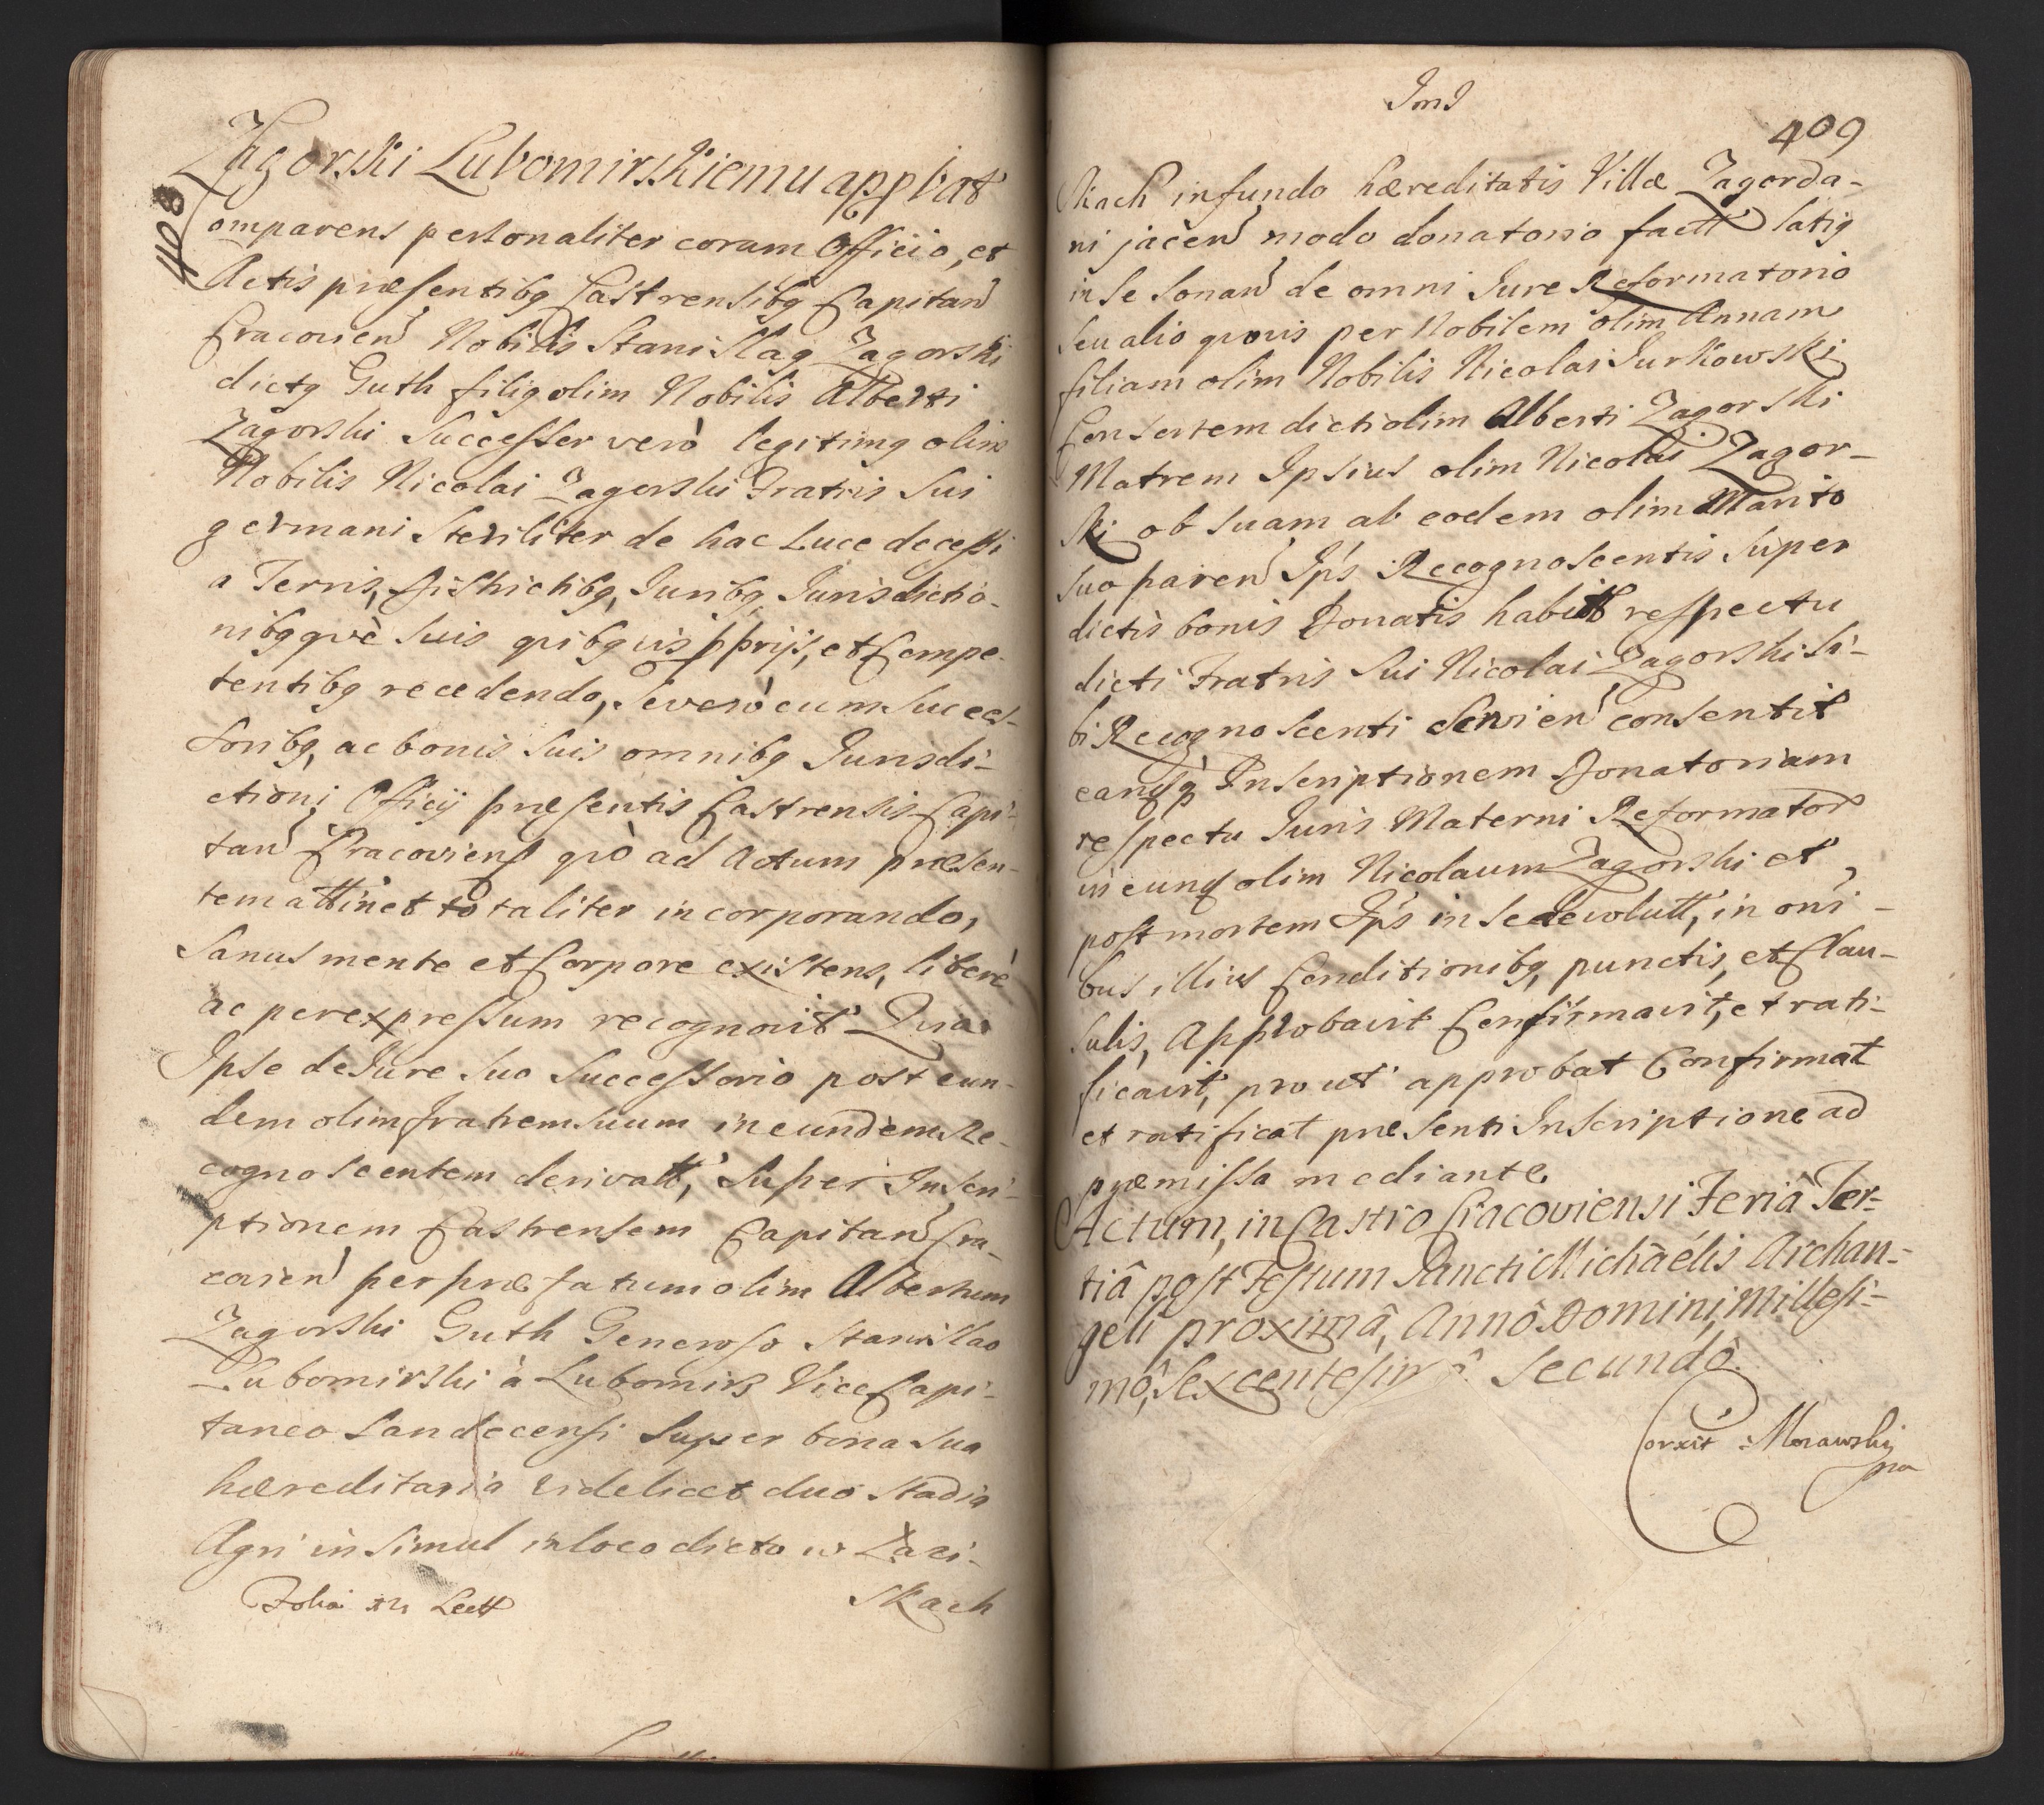 408
Zagorski Lubomirskiemu appbat
Comparens personaliter coram Officio, et
Actis præsentibg Castrensibg Capitan
Cracovien Nobilis Stanislag Zagorski
dictg Guth filig olim Nobilis Alberti
Zagorski Successer verò legitimg olim
Nobilis Nicolai Zagorski Fratris Sui
germani Steriliter de hac Luce decessi
a Terris, Districtibg, Juribg Jurisdictio-
nibgqvè Suis qvibgvis pprijs, et Compe-
tentibg recedendo, Se verò cum Succes-
soribg, ac bonis Suis omnibg Jurisdi-
ctioni Officij præsentis Castrensis Capi-
tan Cracoviens qvò ad Actum præsen-
tem attinet totaliter incorporando,
Sanus mente et Corpore existens, liberè
ac per expressum recognovit Quia
Ipse de Jure Suo Successorio post eun-
dem olim fratrem suum in eundem Re-
cognoscentem derivatt, Super Inscri-
ptionem Castrensem Capitan Cra-
covien per præfatum olim Albertum
Zagorski Guth Generoso Stanislao
Lubomirski à Lubomirz Vice Capi-
taneo Sandecensi Super bona Sua
hæreditaria videlicet duo Stadia
Agri in Simul in loco dicto w Lazi-
Folia Lectt
skach
409
skach in fundo hæreditatis Villæ Zagorza-
ni jacen modo donatorio factt latig
in se Sonan de omni Jure Reformatorio
Seu alio qvovis per Nobilem olim Annam
filiam olim Nobilis Nicolai Jurkowski
Consertem dicti olim Alberti Zagorski
Matrem Ipsius olim Nicolai Zagor-
ski ob Suam ab eodem olim Marito
suo paren Ips Recognoscentis Super
dictis bonis Donatis habitt respectu
dicti Fratris Sui Nicolai Zagorski Si-
bi Recognoscenti Servien consentit
eandq Inscriptionem Donatoriam
respectu Juris Materni Reformator
in eund olim Nicolaum Zagorski et
post mortem Ips in se devolutt, in oni-
bus illius Conditionibg, punctis, et Clau-
sulis, Approbavit Confirmavit, et rati-
ficavit, prout approbat Confirmat
et ratificat præsenti Inscriptione ad
præmissa mediante.
Actum, in Castro Cracoviensi Feriâ Ter-
tiâ post Festum Sancti Michaélis Archan-
geli proximâ, Annô Domini, Millesi-
mô, Sexcentesimô Secundô.
Corxit Morawski